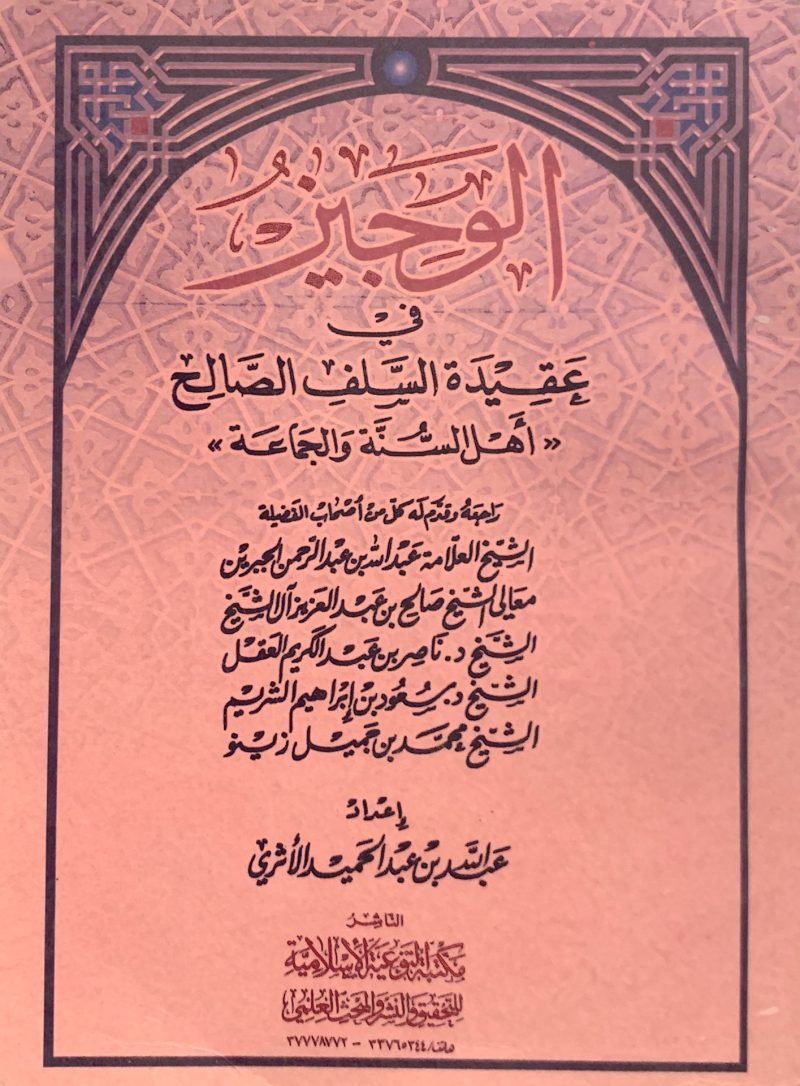 الوَجِيزُ
في
عَقِيدَة السَّلَفِ الصَّالِح
« أَهْل السُّنَّة وَالجَمَاعَة »
رَاجَعَهُ وَقدَّم لَه كلّ من أصْحَاب الفَضيلة
الشِّيخ العلّامة عَبْد الله بن عَبْد الرّحمن الجبرين
معَالي الشّيخ صَالح بن عَبد العَزيز آل الشَّيخ
الشِّيخ د. نَاصِر بن عَبد الكَريم العَقل
الشِّيخ د. سعُود بن إبْراهيم الشريم
الشِّيخ محمَّد بن جَميل زينو
إعْدَاد
عَبد الله بن عَبد الحَميد الأثَري
النَاشِرُ
مكتَبة التَّوعيَة الإسْلاميَّة
للتحقيق والنشر والبحث العلمي
هاتف/ ٣٣٧٦٥٣٤٤ - ٣٧٧٧٨٧٧٢